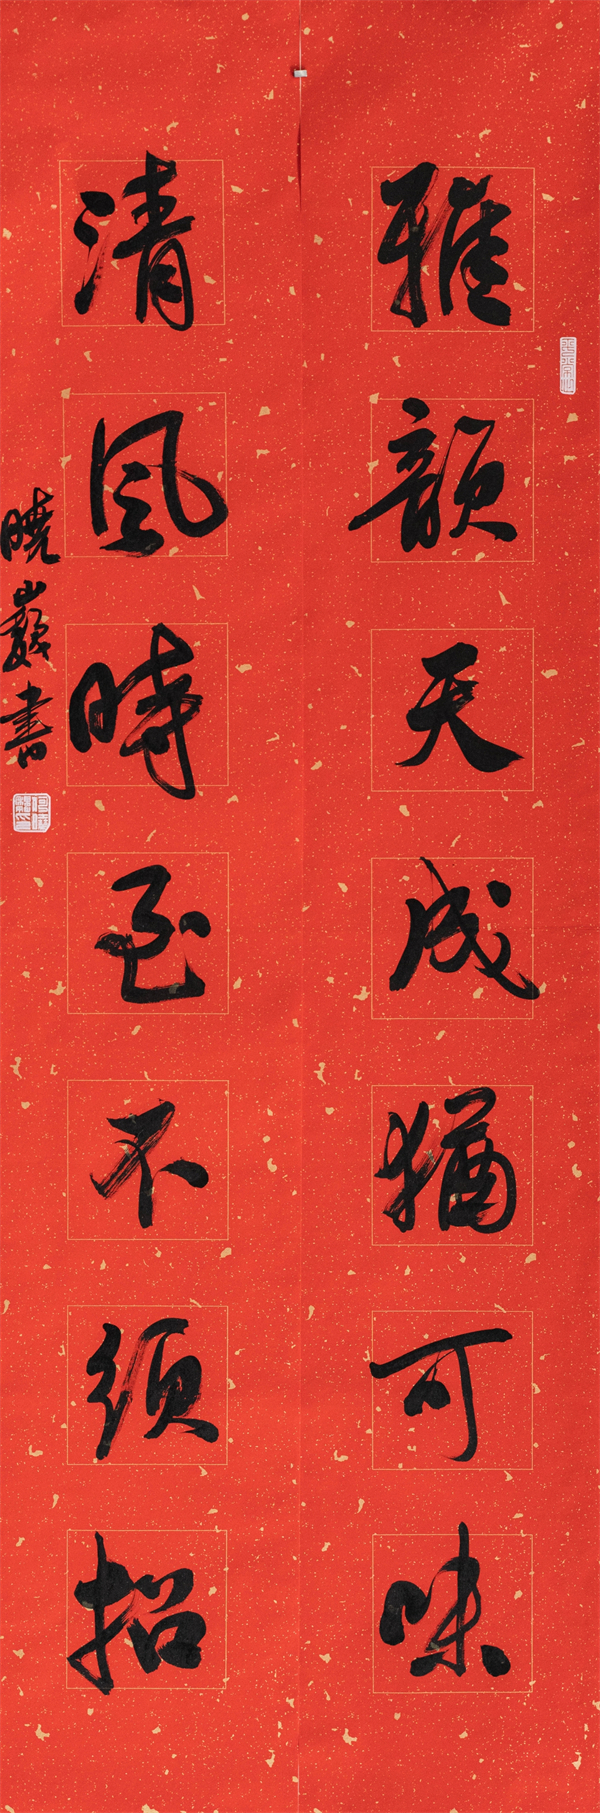 雅韻天成猶可味
清風時至不須招
曉巖書